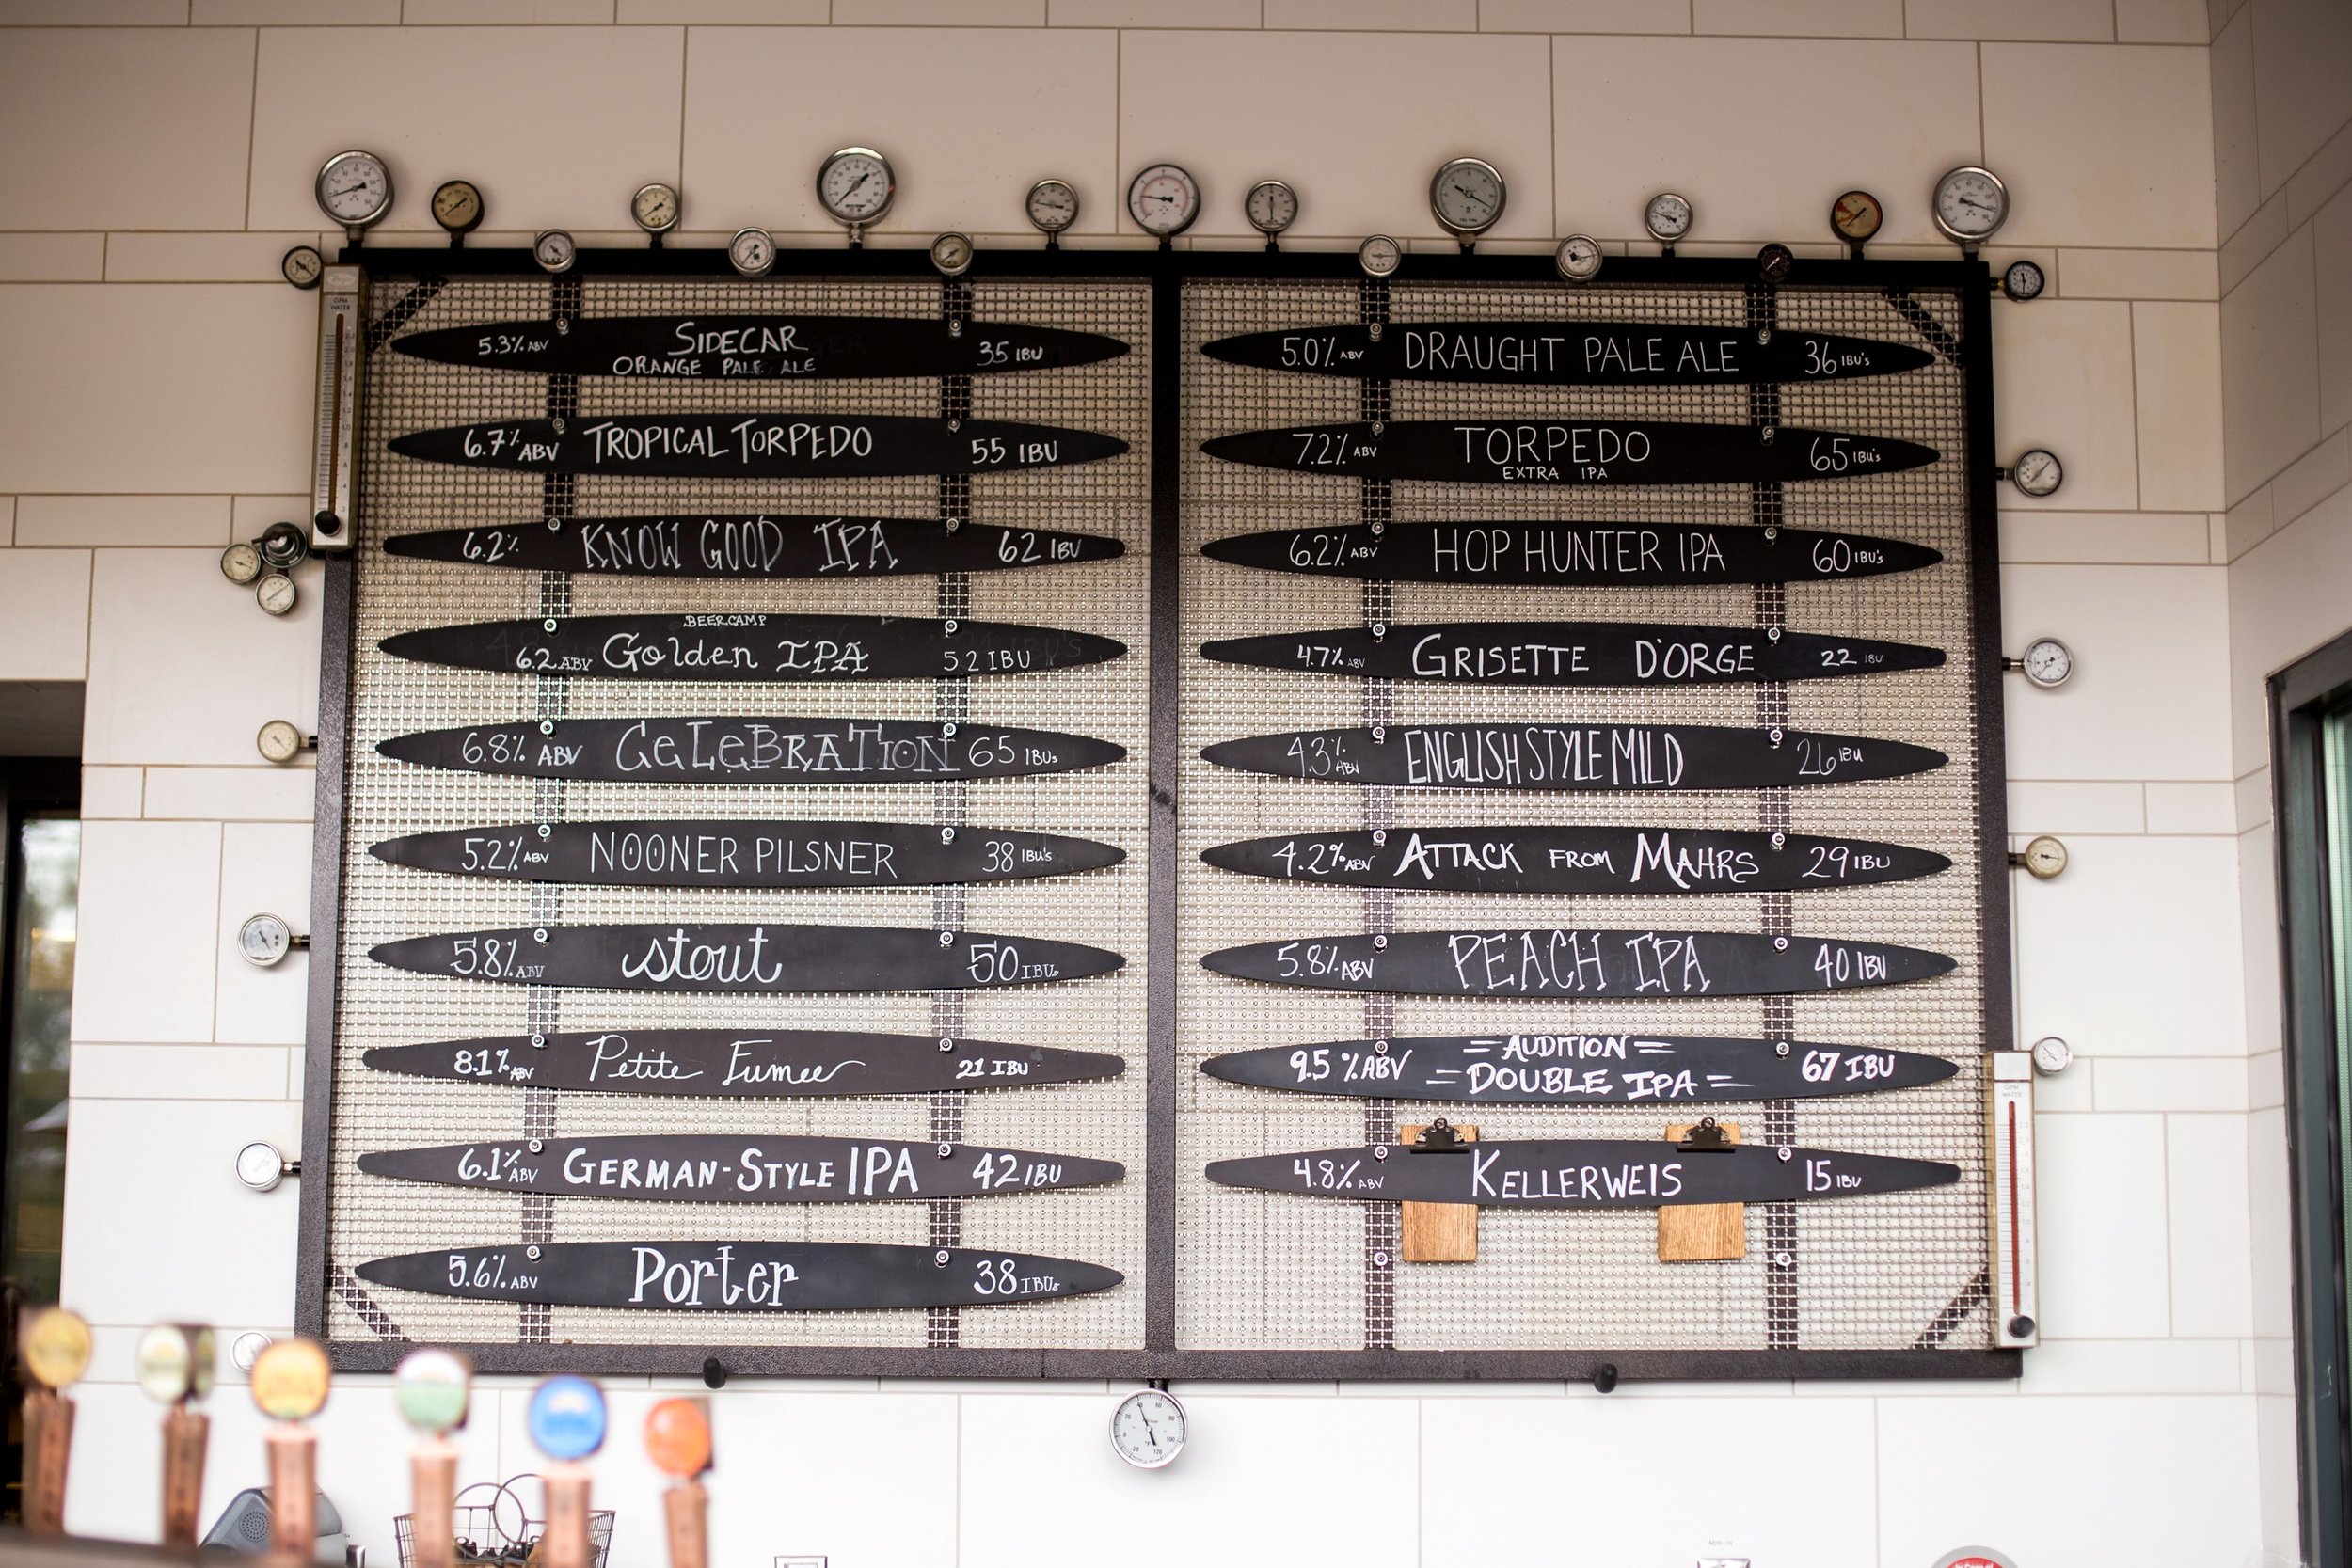 5.3% ABV SIDECAR 35 IBU
ORANGE PALE ALE
6.7% ABV TROPICAL TORPEDO 55 IBU
6.2% KNOW GOOD IPA 62 IBU
BEER CAMP
6.2 ABV Golden IPA 52 IBU
6.8% ABV CeLeBRATION 65 IBUs
5.2% ABV NOONER PILSNER 38 IBU's
5.8% ABV stout 50 IBUs
8.1% ABV Petite Fumee 21 IBU
6.1% ABV GERMAN-STYLE IPA 42 IBU
5.6% ABV Porter 38 IBUs
5.0% ABV DRAUGHT PALE ALE 36 IBU's
7.2% ABV TORPEDO 65 IBU's
EXTRA IPA
6.2% ABV HOP HUNTER IPA 60 IBU's
4.7% ABV GRISETTE D'ORGE 22 IBU
4.3% ABV ENGLISH STYLE MILD 26 IBU
4.2% ABV ATTACK FROM MAHRS 29 IBU
5.8% ABV PEACH IPA 40 IBU
9.5 % ABV =AUDITION= 67 IBU
=DOUBLE IPA=
4.8% ABV KELLERWEIS 15 IBU
GPM
WATER
GPM
WATER